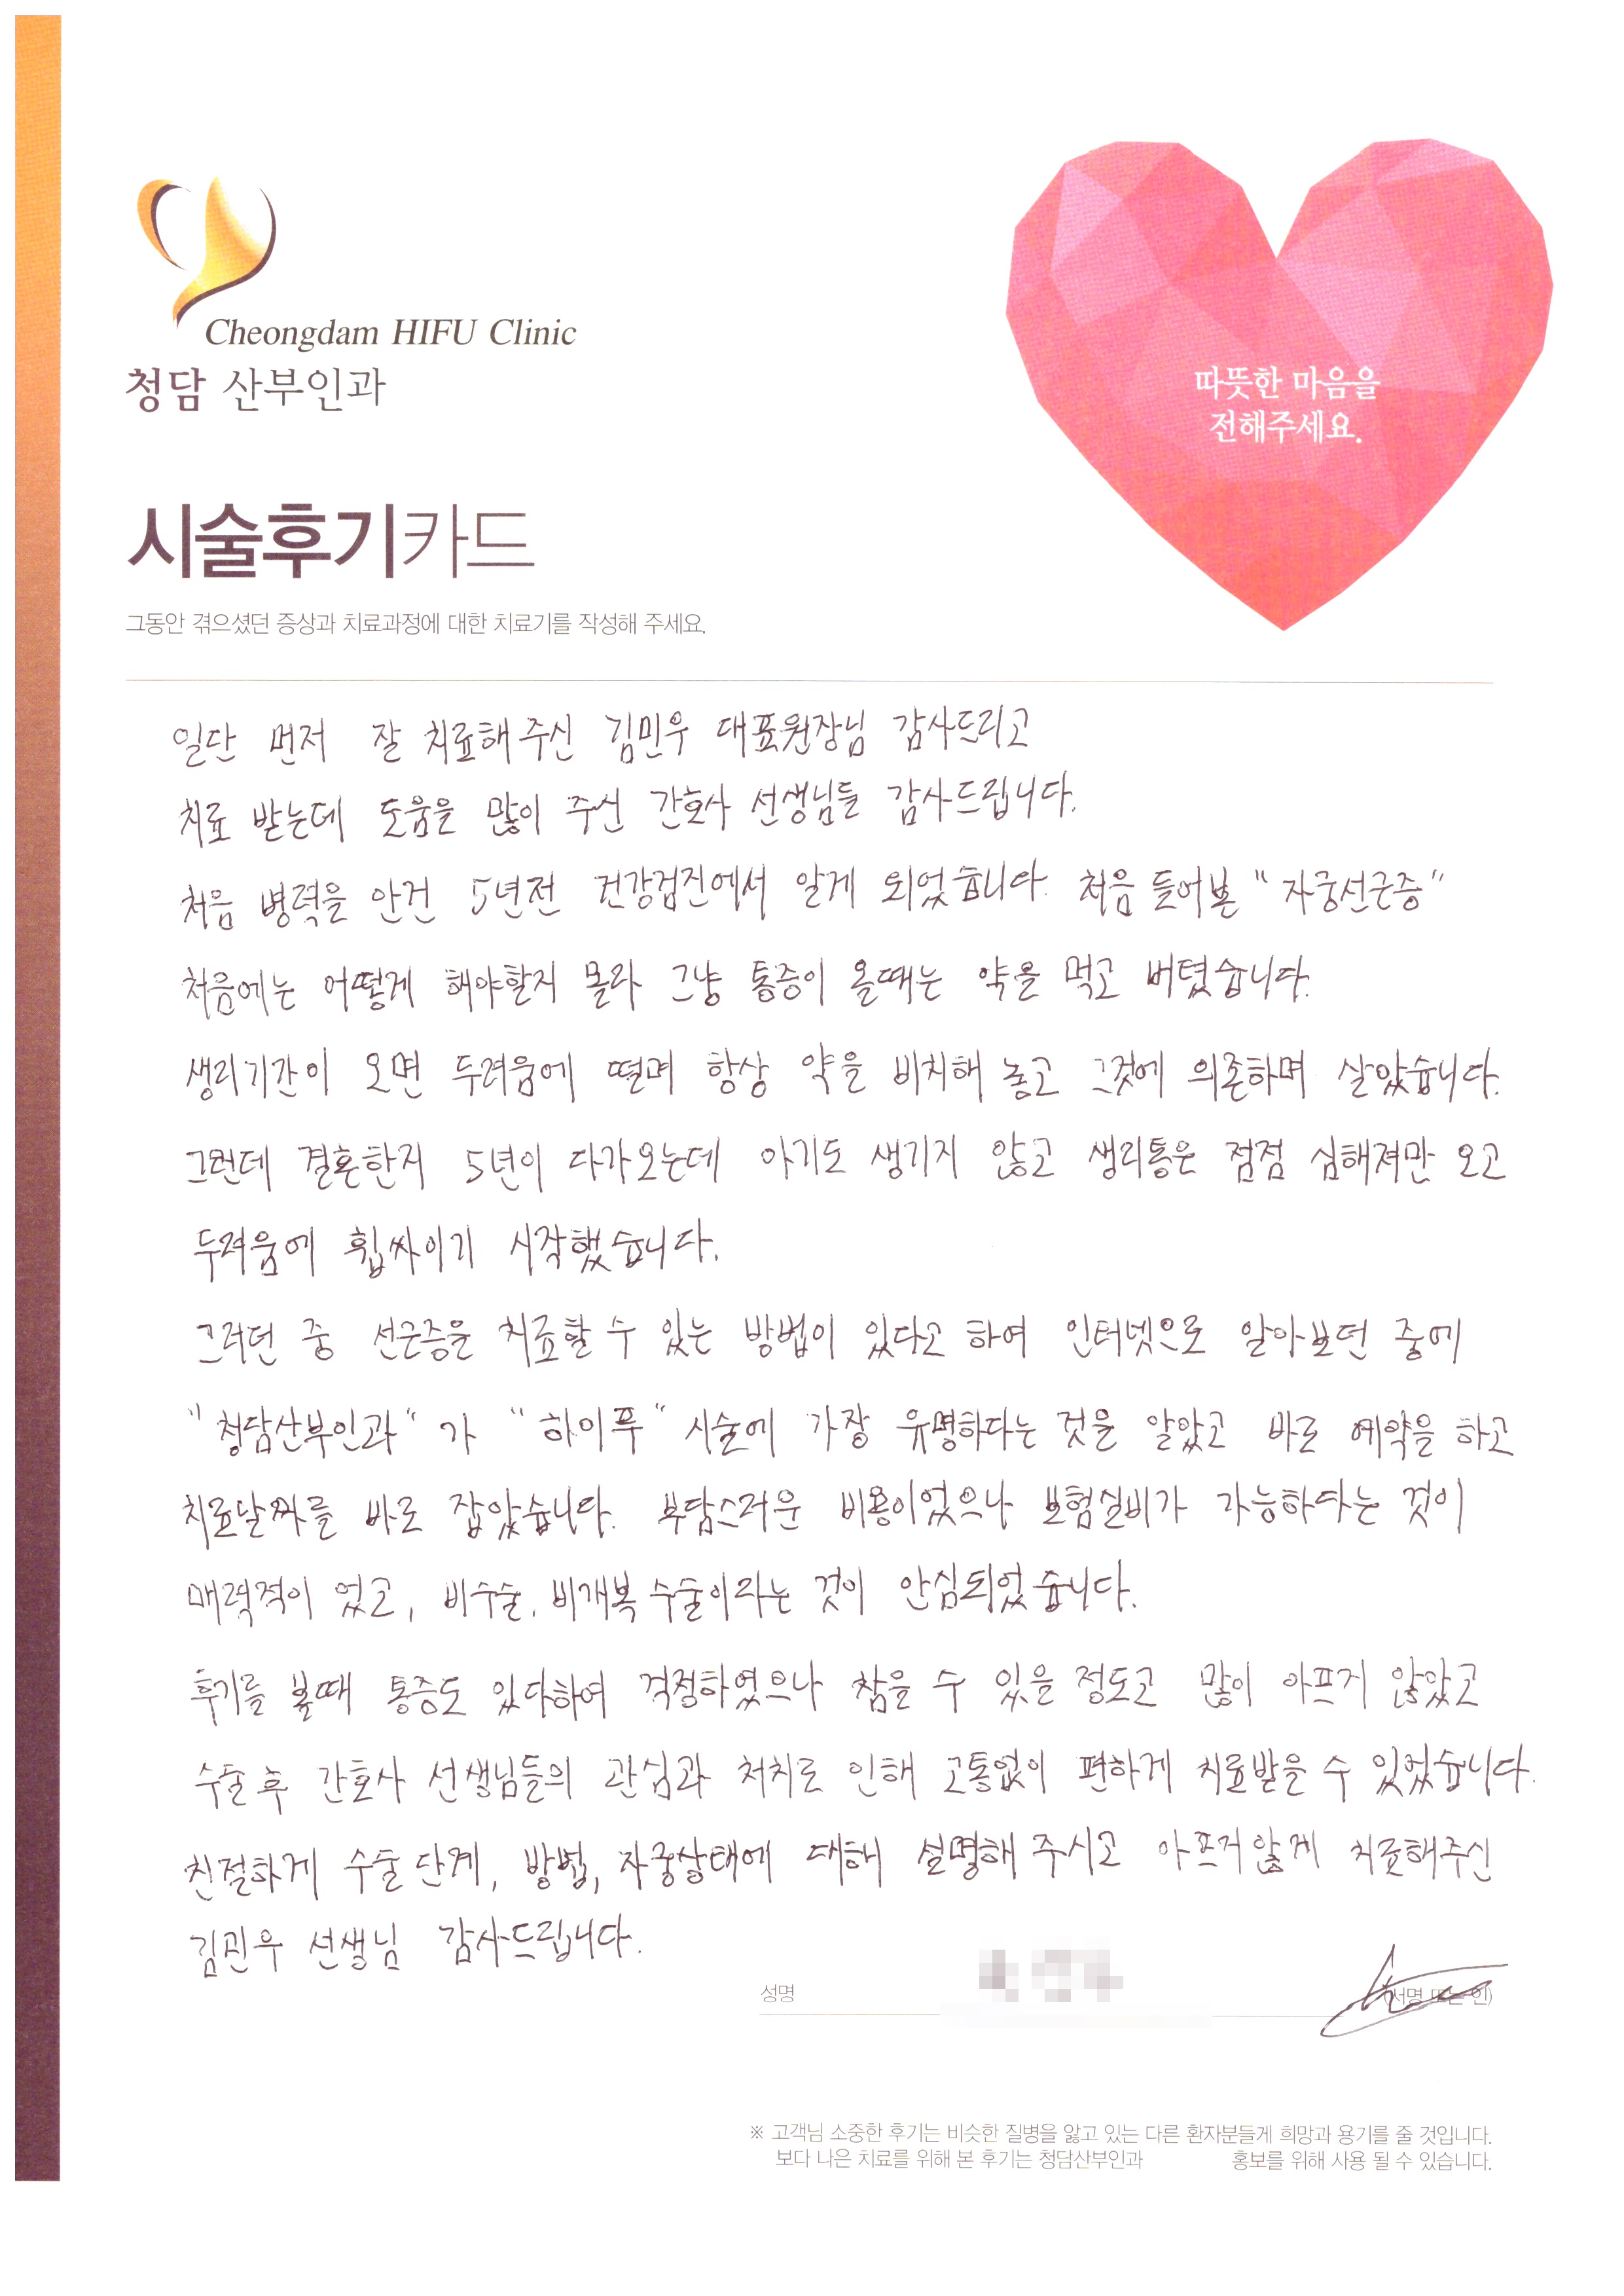 Cheongdam HIFU Clinic
청담 산부인과
따뜻한 마음을
전해주세요.
시술후기카드
그동안 겪으셨던 증상과 치료과정에 대한 치료기를 작성해 주세요.
일단 먼저 잘 치료해주신 김민우 대표원장님 감사드리고
치료 받는데 도움을 많이 주신 간호사 선생님들 감사드립니다.
처음 병력을 안건 5년전 건강검진에서 알게 되었습니다. 처음 들어본 "자궁선근증"
처음에는 어떻게 해야할지 몰라 그냥 통증이 올때는 약을 먹고 버텼습니다.
생리기간이 오면 두려움에 떨며 항상 약을 비치해 놓고 그것에 의존하며 살았습니다.
그런데 결혼한지 5년이 다가오는데 아기도 생기지 않고 생리통은 점점 심해져만 오고
두려움에 휩싸이기 시작했습니다.
그러던 중 선근증을 치료할 수 있는 방법이 있다고 하여 인터넷으로 알아보던 중에
"청담산부인과"가 "하이푸"시술에 가장 유명하다는 것을 알았고 바로 예약을 하고
치료날짜를 바로 잡았습니다. 부담스러운 비용이었으나 보험실비가 가능하다는 것이
매력적이 었고, 비수술, 비개복 수술이라는 것이 안심되었습니다.
후기를 볼때 통증도 있다하여 걱정하였으나 참을 수 있을 정도고 많이 아프지 않았고
수술후 간호사 선생님들의 관심과 처치로 인해 고통없이 편하게 치료받을 수 있었습니다.
친절하게 수술단계, 방법, 자궁상태에 대해 설명해 주시고 아프지않게 치료해주신
김민우 선생님 감사드립니다.
성명 (서명 또는 인)
※ 고객님 소중한 후기는 비슷한 질병을 앓고 있는 다른 환자분들게 희망과 용기를 줄 것입니다.
보다 나은 치료를 위해 본 후기는 청담산부인과 홍보를 위해 사용 될 수 있습니다.